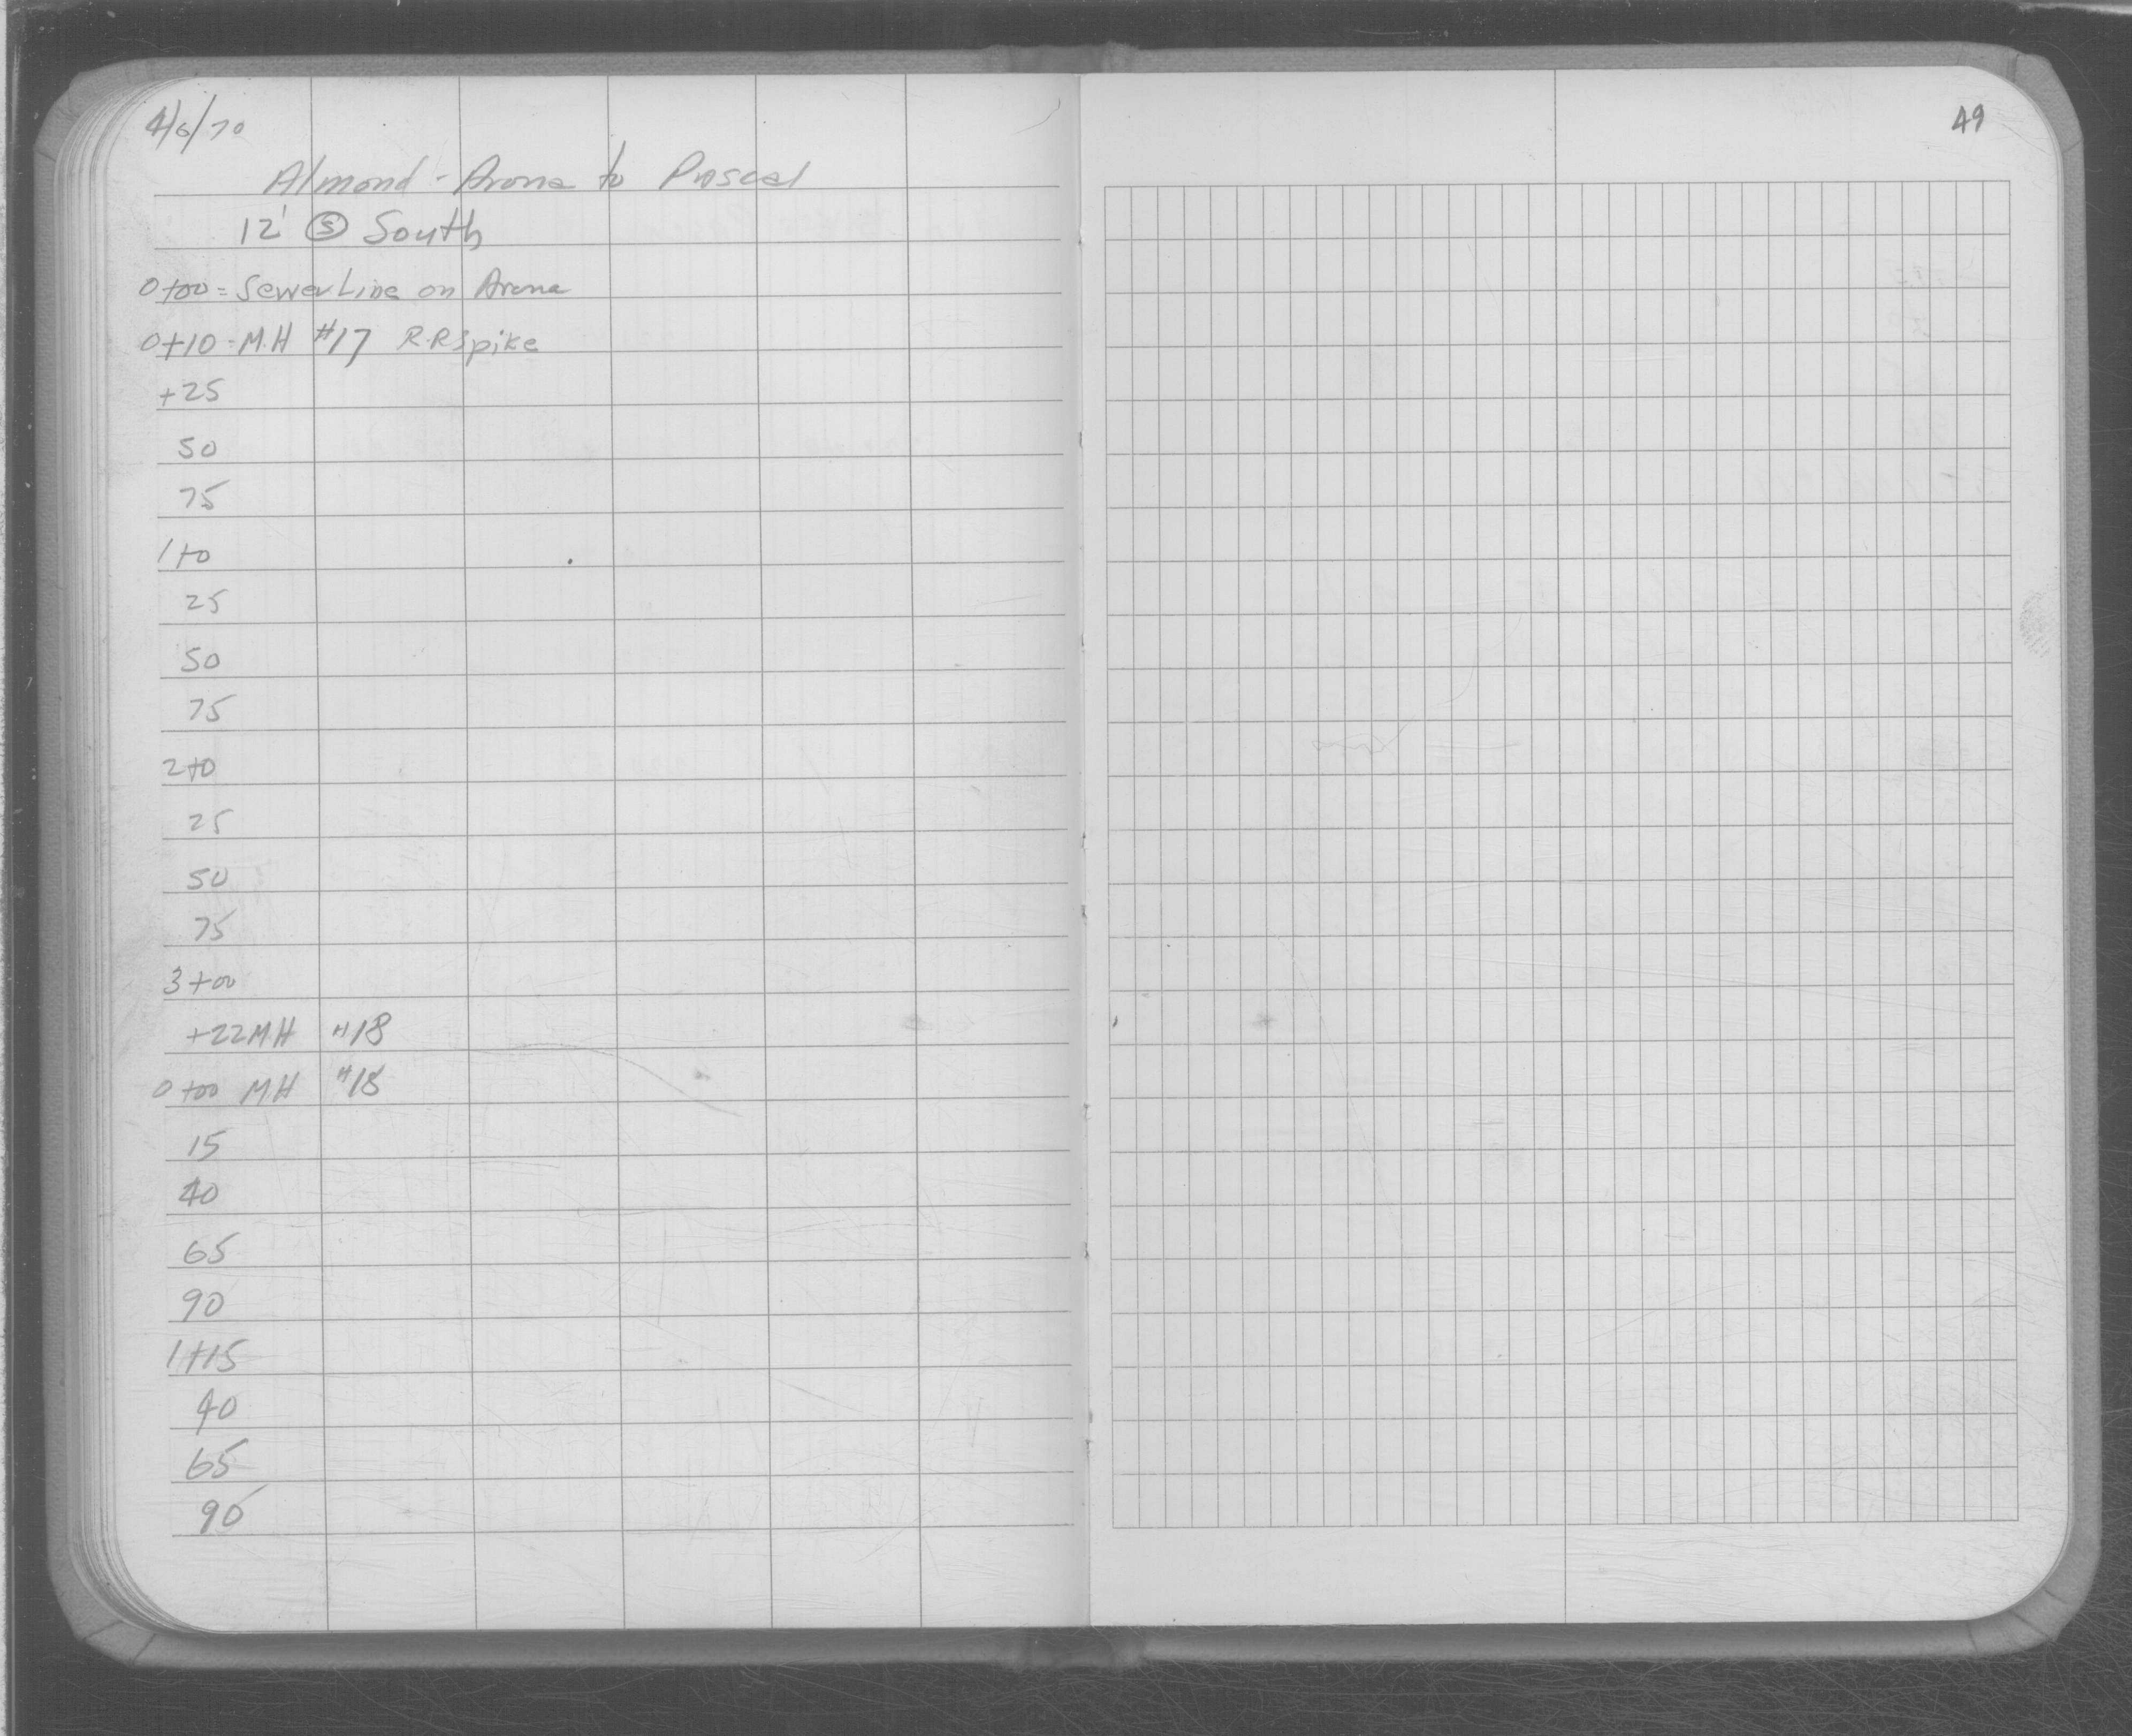 4/6/70
49
Almond - Arona to Pascal
12' Ⓢ South
0+00 = Sewer Line on Arona
0+10 = M.H #17 R.R Spike
+25
50
75
1+0
25
50
75
2+0
25
50
75
3+00
+22 M.H #18
0+00 MH #18
15
40
65
90
1+15
40
65
90